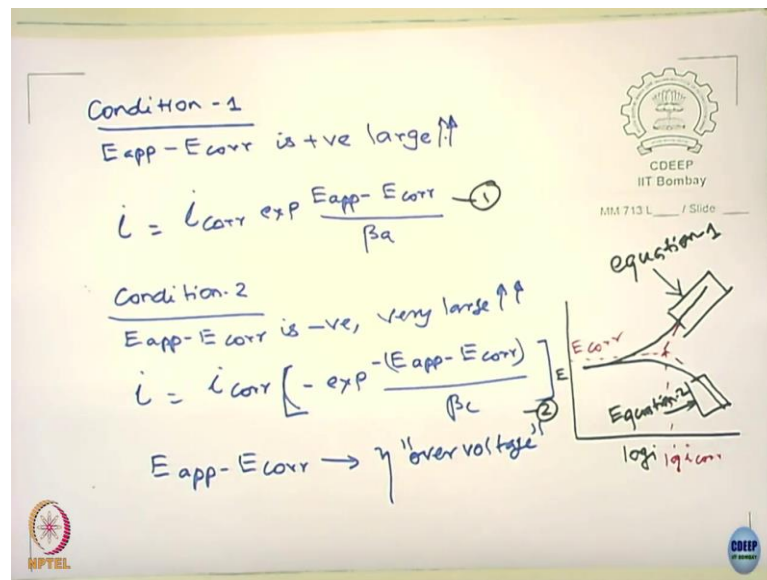 Condition-1
Eapp - Ecorr is +ve large ↑↑
i = icorr exp Eapp - Ecorr / βa —①
Condition-2
Eapp - Ecorr is -ve, very large ↑↑
i = icorr [- exp -(Eapp - Ecorr) / βc ] —②
Eapp - Ecorr → η "over voltage"
CDEEP
IIT Bombay
MM 713 L___ / Slide ___
equation-1
Ecorr
E
Equation-2
logi
NPTEL
CDEEP
IIT BOMBAY